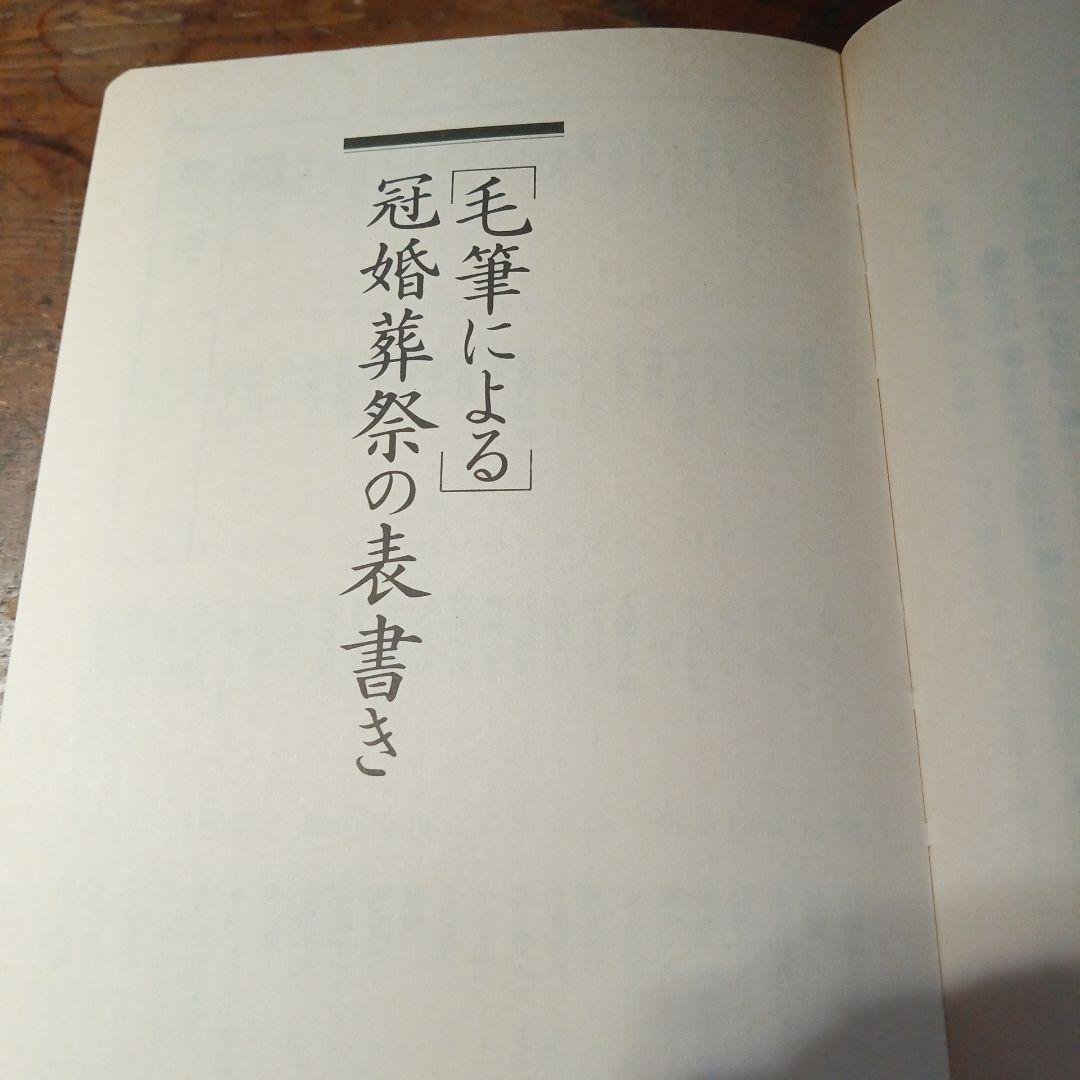 ［毛筆による］
冠婚葬祭の表書き